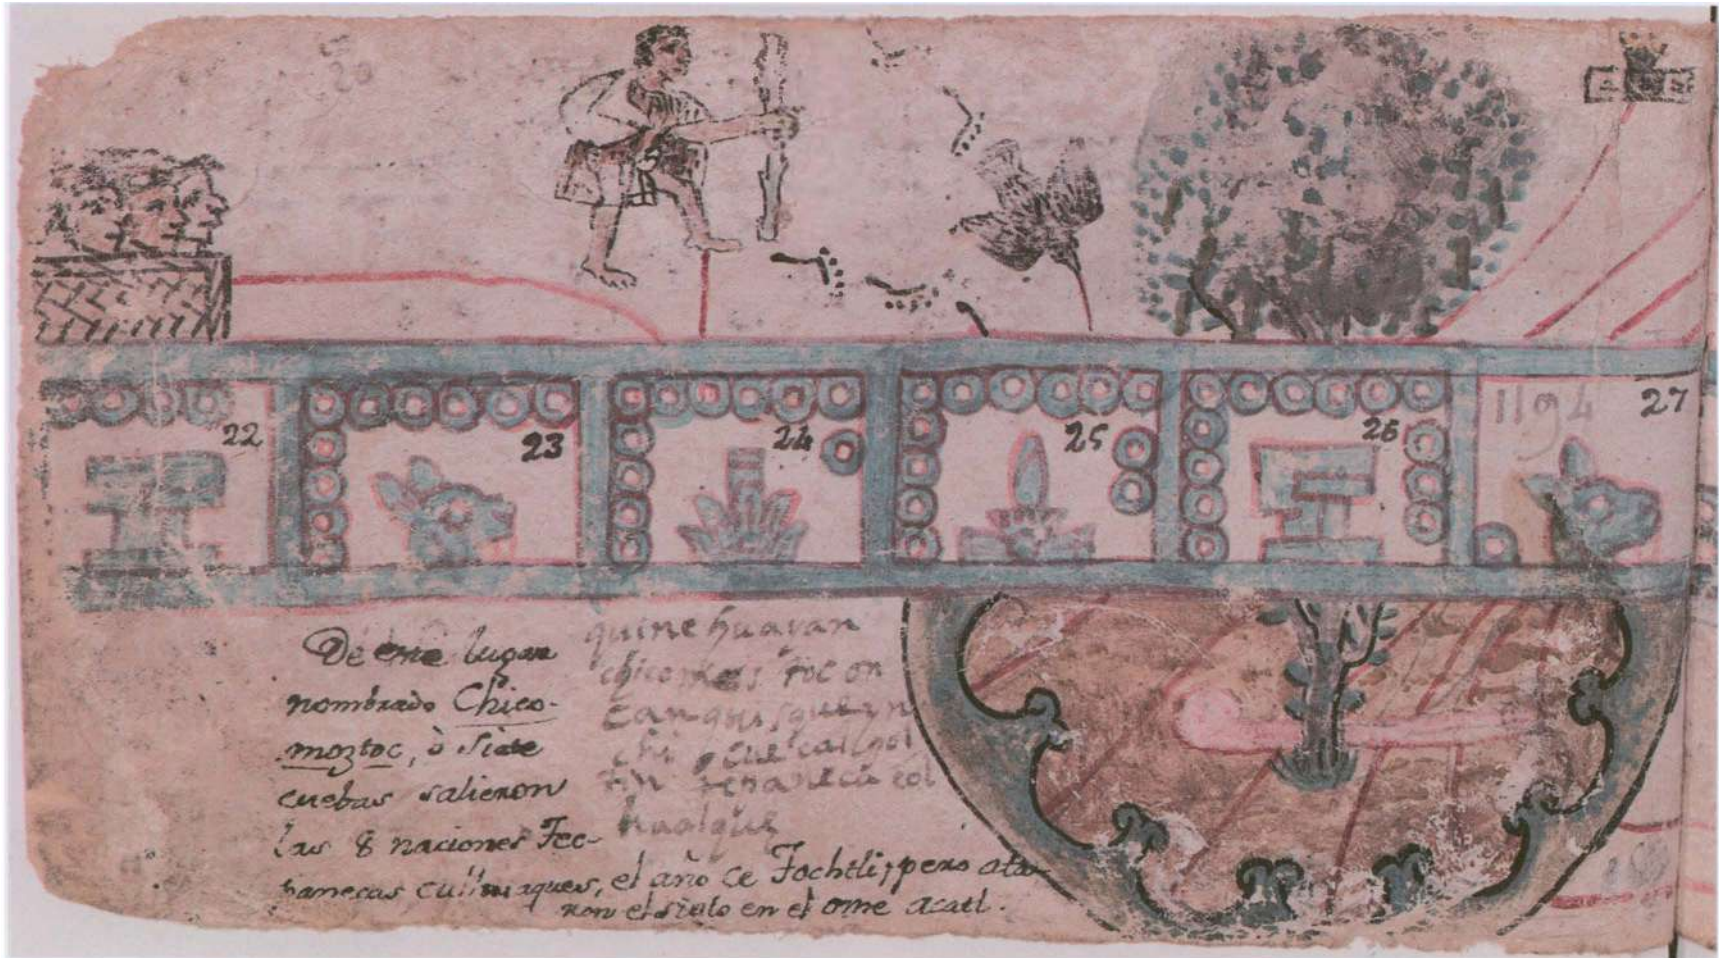 22
23
24
25
26
1194
27
De este lugar
nombrado Chico-
moztoc, ò siete
cuebas salieron
las 8 naciones Tec-
panecas culhuaques, el año ce Tochtli; pero ata-
ron el siglo en el ome acatl.
quinehuayan
chicomoztoc on
can quisque yn